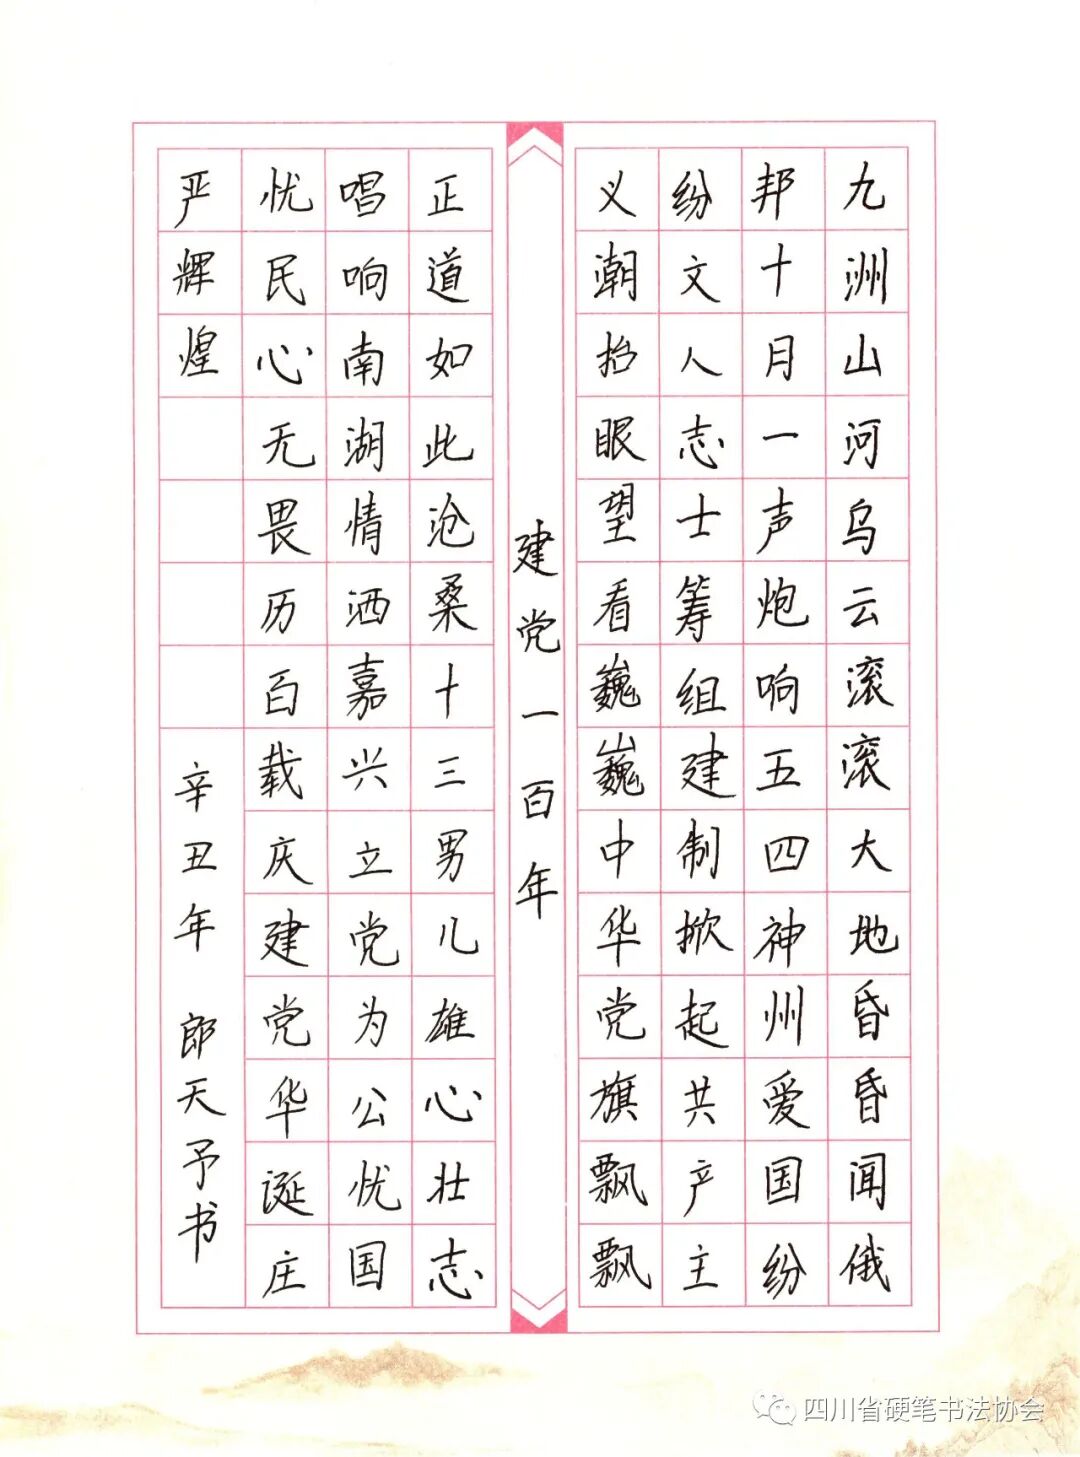 九洲山河乌云滚滚大地昏昏闻俄
邦十月一声炮响五四神州爱国纷
纷文人志士筹组建制掀起共产主
义潮抬眼望看巍巍中华党旗飘飘
建党一百年
正道如此沧桑十三男儿雄心壮志
唱响南湖情洒嘉兴立党为公忧国
忧民心无畏历百载庆建党华诞庄
严辉煌
辛丑年 郎天予书
四川省硬笔书法协会